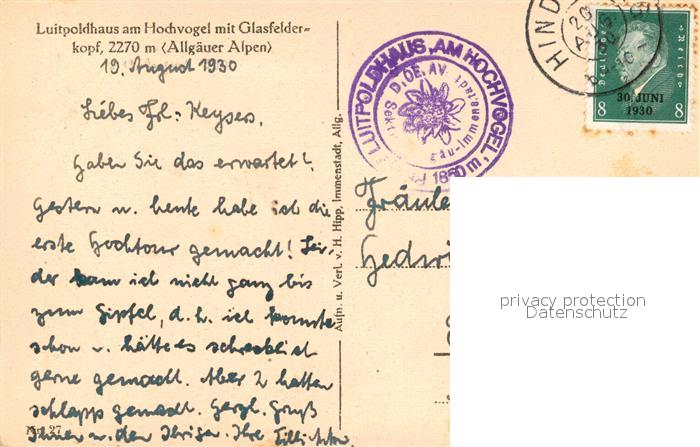 Luitpoldhaus am Hochvogel mit Glasfelder-
kopf, 2270 m (Allgäuer Alpen)
19. August 1930
Liebes Frl. Keyser,
Haben Sie das erwartet!
Gestern u. heute habe ich die
erste Hochtour gemacht! Lei-
der kam ich nicht ganz bis
zum Gipfel, d.h. ich konnte
schon u. hätte es schrecklich
gerne gemacht. Aber 2 hatten
schlapp gemacht. Herzl. Gruß
Ihnen u. den Ihrigen. Ihre
Nr. 27
Aufn. u. Verl. v. H. Hipp, Immenstadt, Allg.
LUITPOLDHAUS, AM HOCHVOGEL,
D.OE.AV.
Sekt.
gäu-Immenstadt
1850 m
HIND
20
AUG
8 30. JUNI 8
1930
Deutsches Reich
Fräulei
Hedwi
privacy protection
Datenschutz